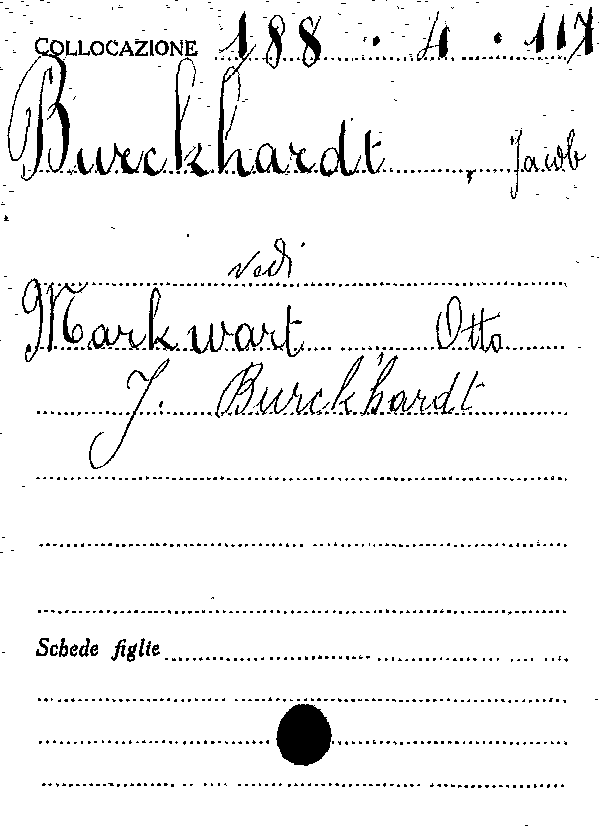 COLLOCAZIONE 188 . 4 . 117
Burckhardt, Jacob
vedi
Markwart Otto
J. Burckhardt
Schede figlie